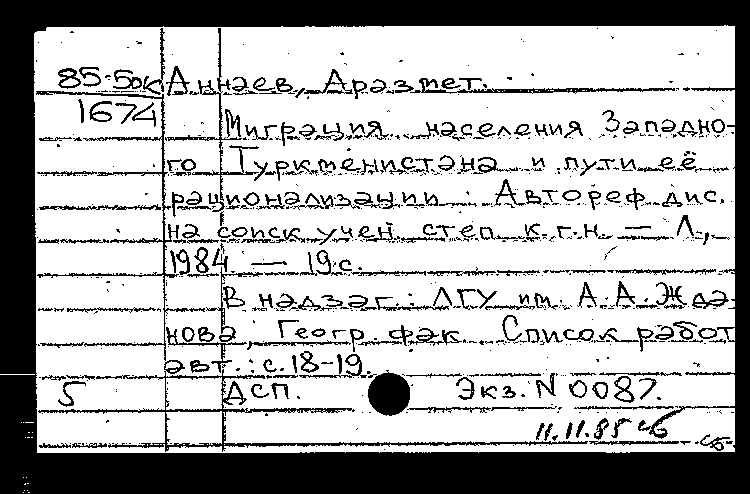 85-5ок Аннаев, Аразмет.
1674
Миграция населения Западно-
го Туркменистана и пути её
рационализации : Автореф дис.
на соиск учен степ к.г.н. — Л.,
1984 — 19 с.
В надзаг.: ЛГУ им. А.А. Жда-
нова, Геогр. фак Список работ
авт.: с. 18-19.
5 ДСП. Экз. N 0087.
11.11.85